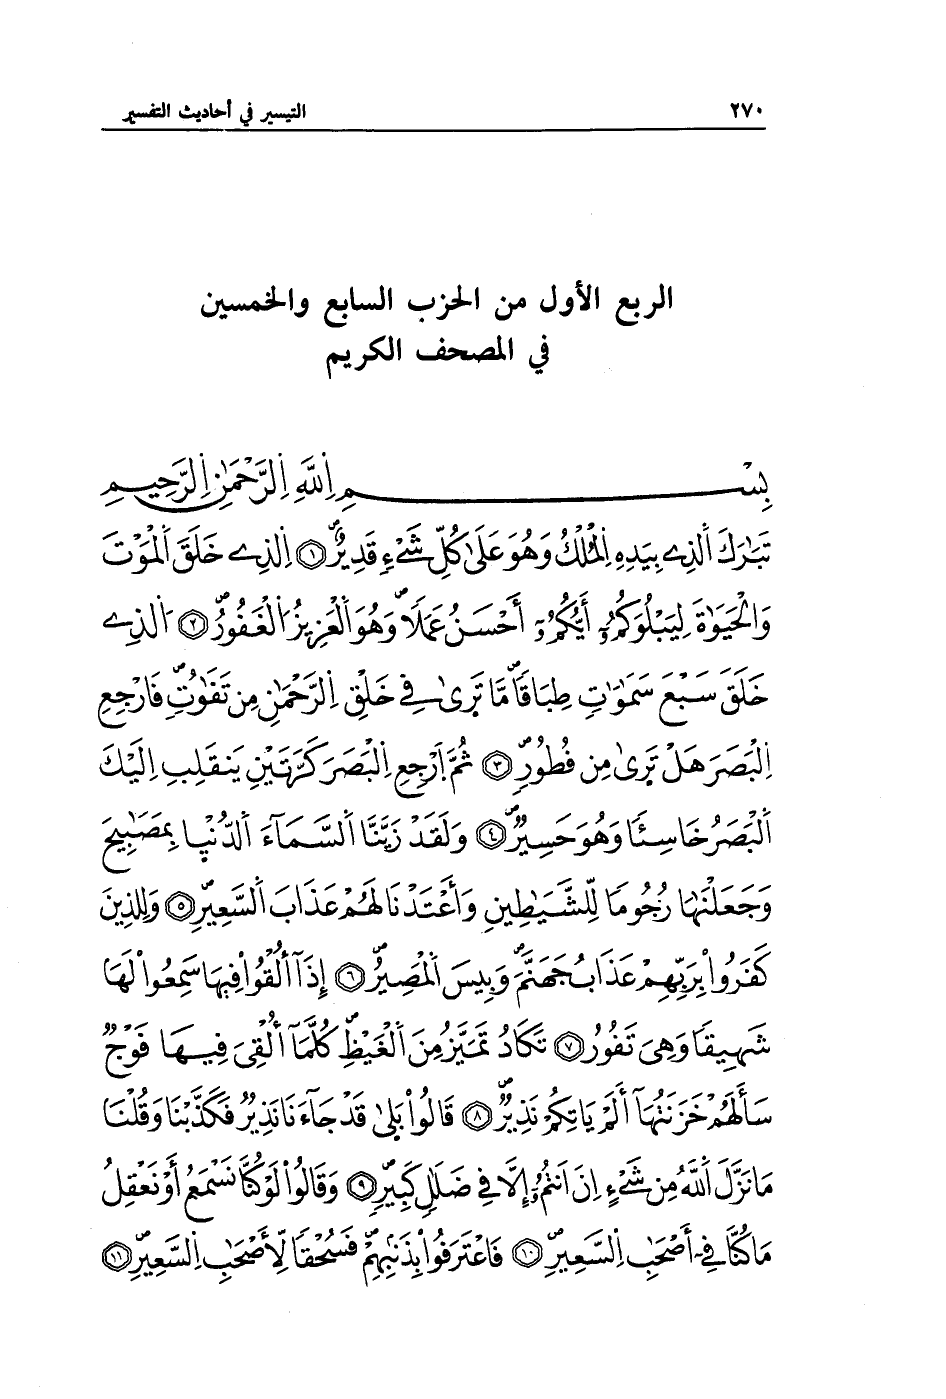 ٢٧٠ التيسير في أحاديث التفسير
الربع الأول من الحزب السابع والخمسين
في المصحف الكريم
بِسْمِ اِللَّهِ اِلرَّحْمَٰنِ اِلرَّحِيمِ
تَبَٰرَكَ اَلذِے بِيَدِهِ اِلْمُلْكُ وَهُوَ عَلَىٰ كُلِّ شَےْءٍ قَدِيرٌ ١ اِلذِے خَلَقَ اَلْمَوْتَ
وَالْحَيَوٰةَ لِيَبْلُوَكُمُۥٓ أَيُّكُمُۥٓ أَحْسَنُ عَمَلاً وَهُوَ اَلْعَزِيزُ اُلْغَفُورُ ٢ اُلذِے
خَلَقَ سَبْعَ سَمَٰوَٰتٍ طِبَاقاً مَّا تَرَىٰ فِے خَلْقِ اِلرَّحْمَٰنِ مِن تَفَٰوُتٍ فَارْجِعِ
اِلْبَصَرَ هَلْ تَرَىٰ مِن فُطُورٍ ٣ ثُمَّ اَرْجِعِ اِلْبَصَرَ كَرَّتَيْنِ يَنقَلِبِ اِلَيْكَ
اَلْبَصَرُ خَاسِئًا وَهُوَ حَسِيرٌ ٤ وَلَقَدْ زَيَّنَّا اَلسَّمَآءَ اَلدُّنْيِا بِمَصَٰبِيحَ
وَجَعَلْنَٰهَا رُجُوماً لِّلشَّيَٰطِينِ وَأَعْتَدْنَا لَهُمْ عَذَابَ اَلسَّعِيرِ ٥ وَلِلذِينَ
كَفَرُواْ بِرَبِّهِمْ عَذَابُ جَهَنَّمَ وَبِيسَ اَلْمَصِيرُ ٦ إِذَآ أُلْقُواْ فِيهَا سَمِعُواْ لَهَا
شَهِيقاً وَهِىَ تَفُورُ ٧ تَكَادُ تَمَيَّزُ مِنَ اَلْغَيْظِ كُلَّمَآ أُلْقِىَ فِيهَا فَوْجٌ
سَأَلَهُمْ خَزَنَتُهَآ أَلَمْ يَاتِكُمْ نَذِيرٌ ٨ قَالُواْ بَلَىٰ قَدْ جَآءَنَا نَذِيرٌ فَكَذَّبْنَا وَقُلْنَا
مَا نَزَّلَ اَللَّهُ مِن شَےْءٍ اِنَ اَنتُمُۥٓ إِلَّا فِے ضَلَٰلٍ كَبِيرٍ ٩ وَقَالُواْ لَوْ كُنَّا نَسْمَعُ أَوْ نَعْقِلُ
مَا كُنَّا فِےٓ أَصْحَٰبِ اِلسَّعِيرِ ١٠ فَاعْتَرَفُواْ بِذَنۢبِهِمْ فَسُحْقاً لِّأَصْحَٰبِ اِلسَّعِيرِ ١١